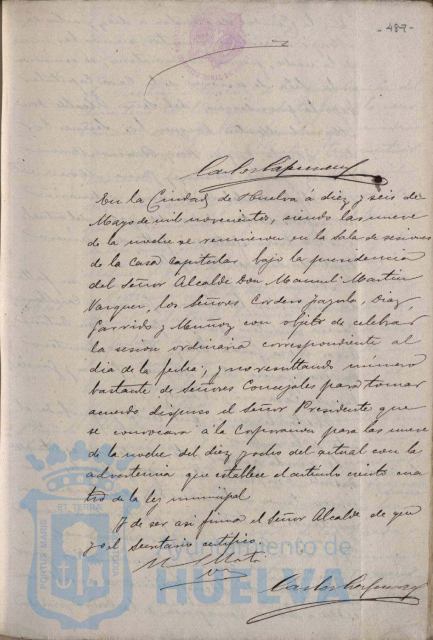 - 489 -
En la Ciudad de Huelva á diez y seis de
Mayo de mil novecientos, siendo las nueve
de la noche se reunieron en la Sala de sesiones
de la casa capitular bajo la presidencia
del Señor Alcalde Don Manuel Martin
Vazquez, los Señores Cordero, Diaz,
Garrido y Muñoz con objeto de celebrar
la sesion ordinaria correspondiente al
dia de la fecha, y no resultando número
bastante de Señores Concejales para tomar
acuerdo dispuso el Señor Presidente que
se convocara á la Corporacion para las nueve
de la noche del diez y ocho del actual con la
advertencia que establece el artículo ciento cua
tro de la ley municipal.
Y de ser asi firma el Señor Alcalde de que
yo el Secretario certifico.
Carlos
PORTUS MARIS
ET TERRÆ
CUSTODIA
Ayuntamiento de
HUELVA